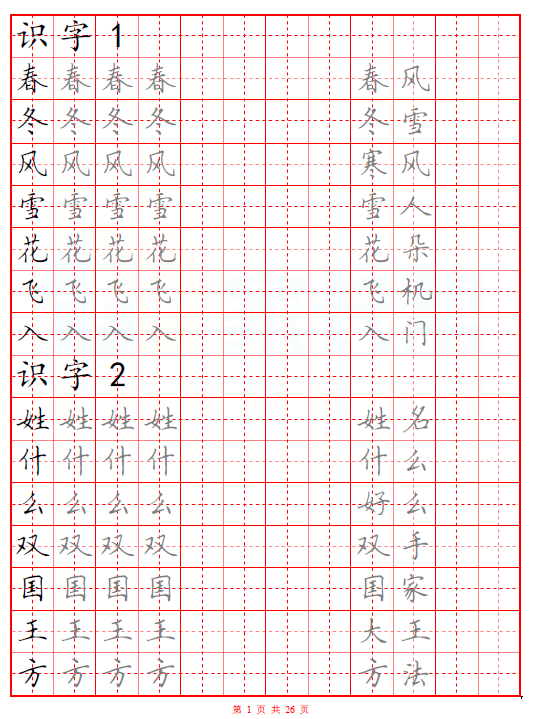 识字1
春春春春春风
冬冬冬冬冬雪
风风风风寒风
雪雪雪雪雪人
花花花花花朵
飞飞飞飞飞机
入入入入入门
识字2
姓姓姓姓姓名
什什什什什么
么么么么好么
双双双双双手
国国国国国家
王王王王大王
方方方方方法
第 1 页 共 26 页